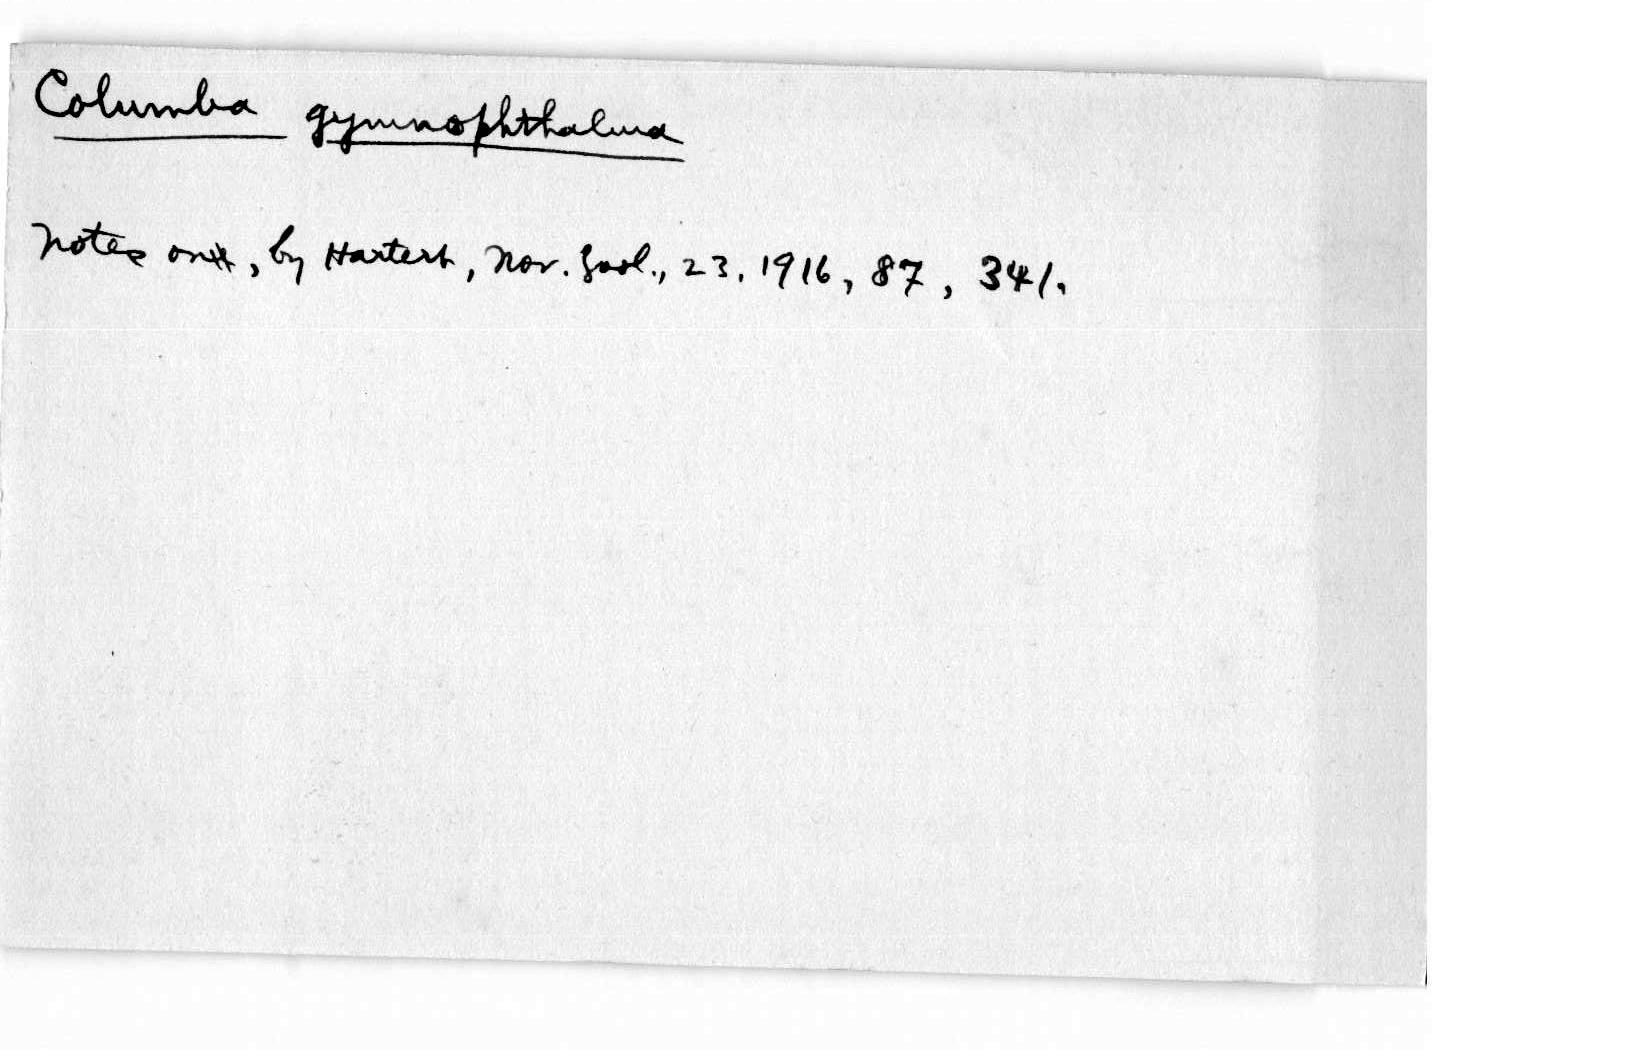 Columba gymnophthalma
Notes on it, by Hartert, Nov. Zool., 23, 1916, 87, 341.